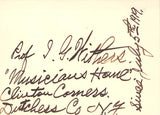 Prof I. G. Withers
"Musicians Home"
Clinton Corners.
Dutchess Co N.Y.
since July 5th 1919.